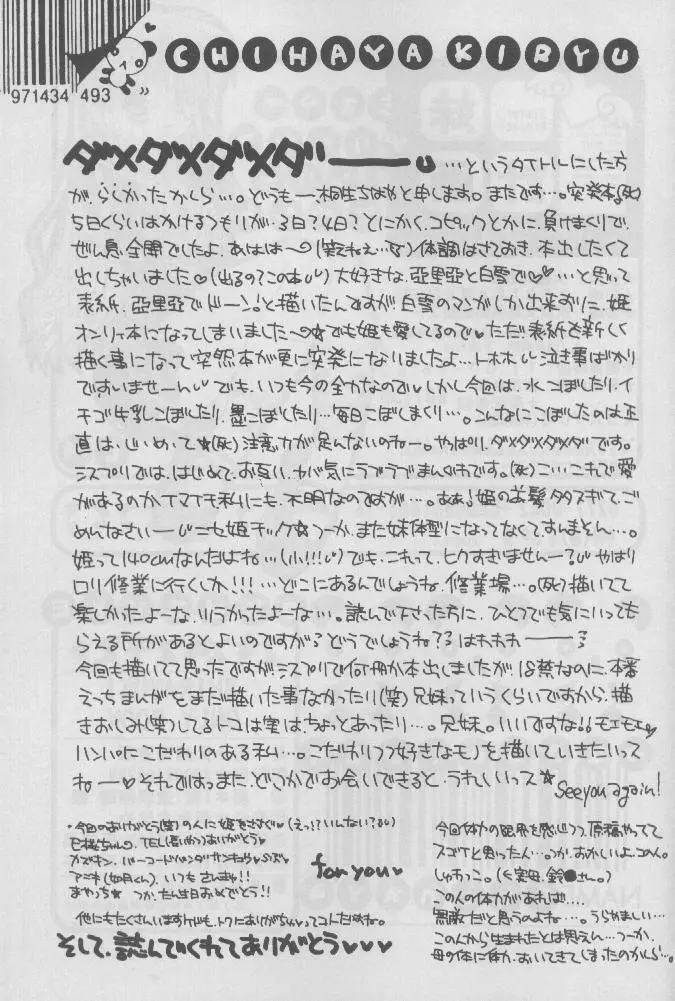 CHIHAYA KIRYU
971434 493
ダメダメダメダーーー。
…というタイトルにした方
が、らしかったかしら…。どうもー、桐生ちはやと申します。またです…。突発本。(死)
5日くらいはかけるつもりが、3日?4日?とにかく、コピックとかに、負けまくりで、
ぜん息全開でしたよ、あはは〜(笑えねぇ…死)体調はさておき、本出したくて
出しちゃいました♡(出るの?この本)大好きな、亞里亞と白雪で♡♡…と思って
表紙、亞里亞でドーン!と描いたんですが白雪のマンガしか出来ずに、姫
オンリー本になってしまいました〜☆でも姫も愛してるので♥ただ表紙を新しく
描く事になって突然本が更に突発になりましたよ…トホホ 泣き事ばかり
ですいませーん でも、いつも今の全力なので♥しかし今回は、水こぼしたり、イ
チゴ牛乳こぼしたり、墨こぼしたり…毎日こぼしまくり…。こんなにこぼしたのは正
直は、じめて★(死)注意力が足んないのねー。やっぱり、ダメダメダメダです。
シスプリでは、はじめて、お互い、ヤバ気にラブラブまんがです。(死)こ…これで愛
があるのかイマイチ、私にも、不明なのですが…。ああ!姫のお髪タタスギで、ご
めんなさいー ニセ姫チック☆つーか、また妹体型になってなくて、すいません…。
姫って140cmなんだよね…(小!!!)でも、これって、ヒクすぎませんー? やはり
ロリ修業に行くしか!!!…どこにあるんでしょうね、修業場…。(死)描いてて
楽しかったよーな、ツラかったよーな…。読んで下さった方に、ひとつでも気にいっても
らえる所があるとよいのですが?どうでしょうね??はわわわーーー
今回も描いてて思ったですが、シスプリで何冊か本出しましたが、18禁なのに、本番
えっちまんがをまだ描いた事なかったり(笑)兄妹っていうくらいですから、描
きおしみ(笑)してるトコは実は、ちょっとあったり…。兄妹。いいですな!!モエモエ♥
ハンパにこだわりのある私…。こだわりつつ好きなモノを描いていきたいっス
ねー♥それではっまた、どこかでお会いできると、うれしいっス★
See you again!
・今回のありがとう(笑)の人に姫をささぐ♥(えっ!?いんない?)
TEL(長いやつ)ありがとう♡
カズキン、バーコード
アニキ(如月くん)、いつもさんきゅ!!
まやっち★ つか、たん生日おめでとう!!
他にもたくさんいますけども、トクにありがちゅ♥ってコトだわね。
for you♥
そして、読んでくれてありがとう♥♥♥
今回体力の限界を感じつつ、原稿やってて
スゴイと思った人…つか、おかしいよ、コの人。
しゅわっこ。(を実母、鈴●さん。)
この人の体力があれば…
無敵だと思うのよね…。うらやましい…
この人から生まれたとは思えん…つーか、
母の体に体力、おいてきてしまったのかしら…。